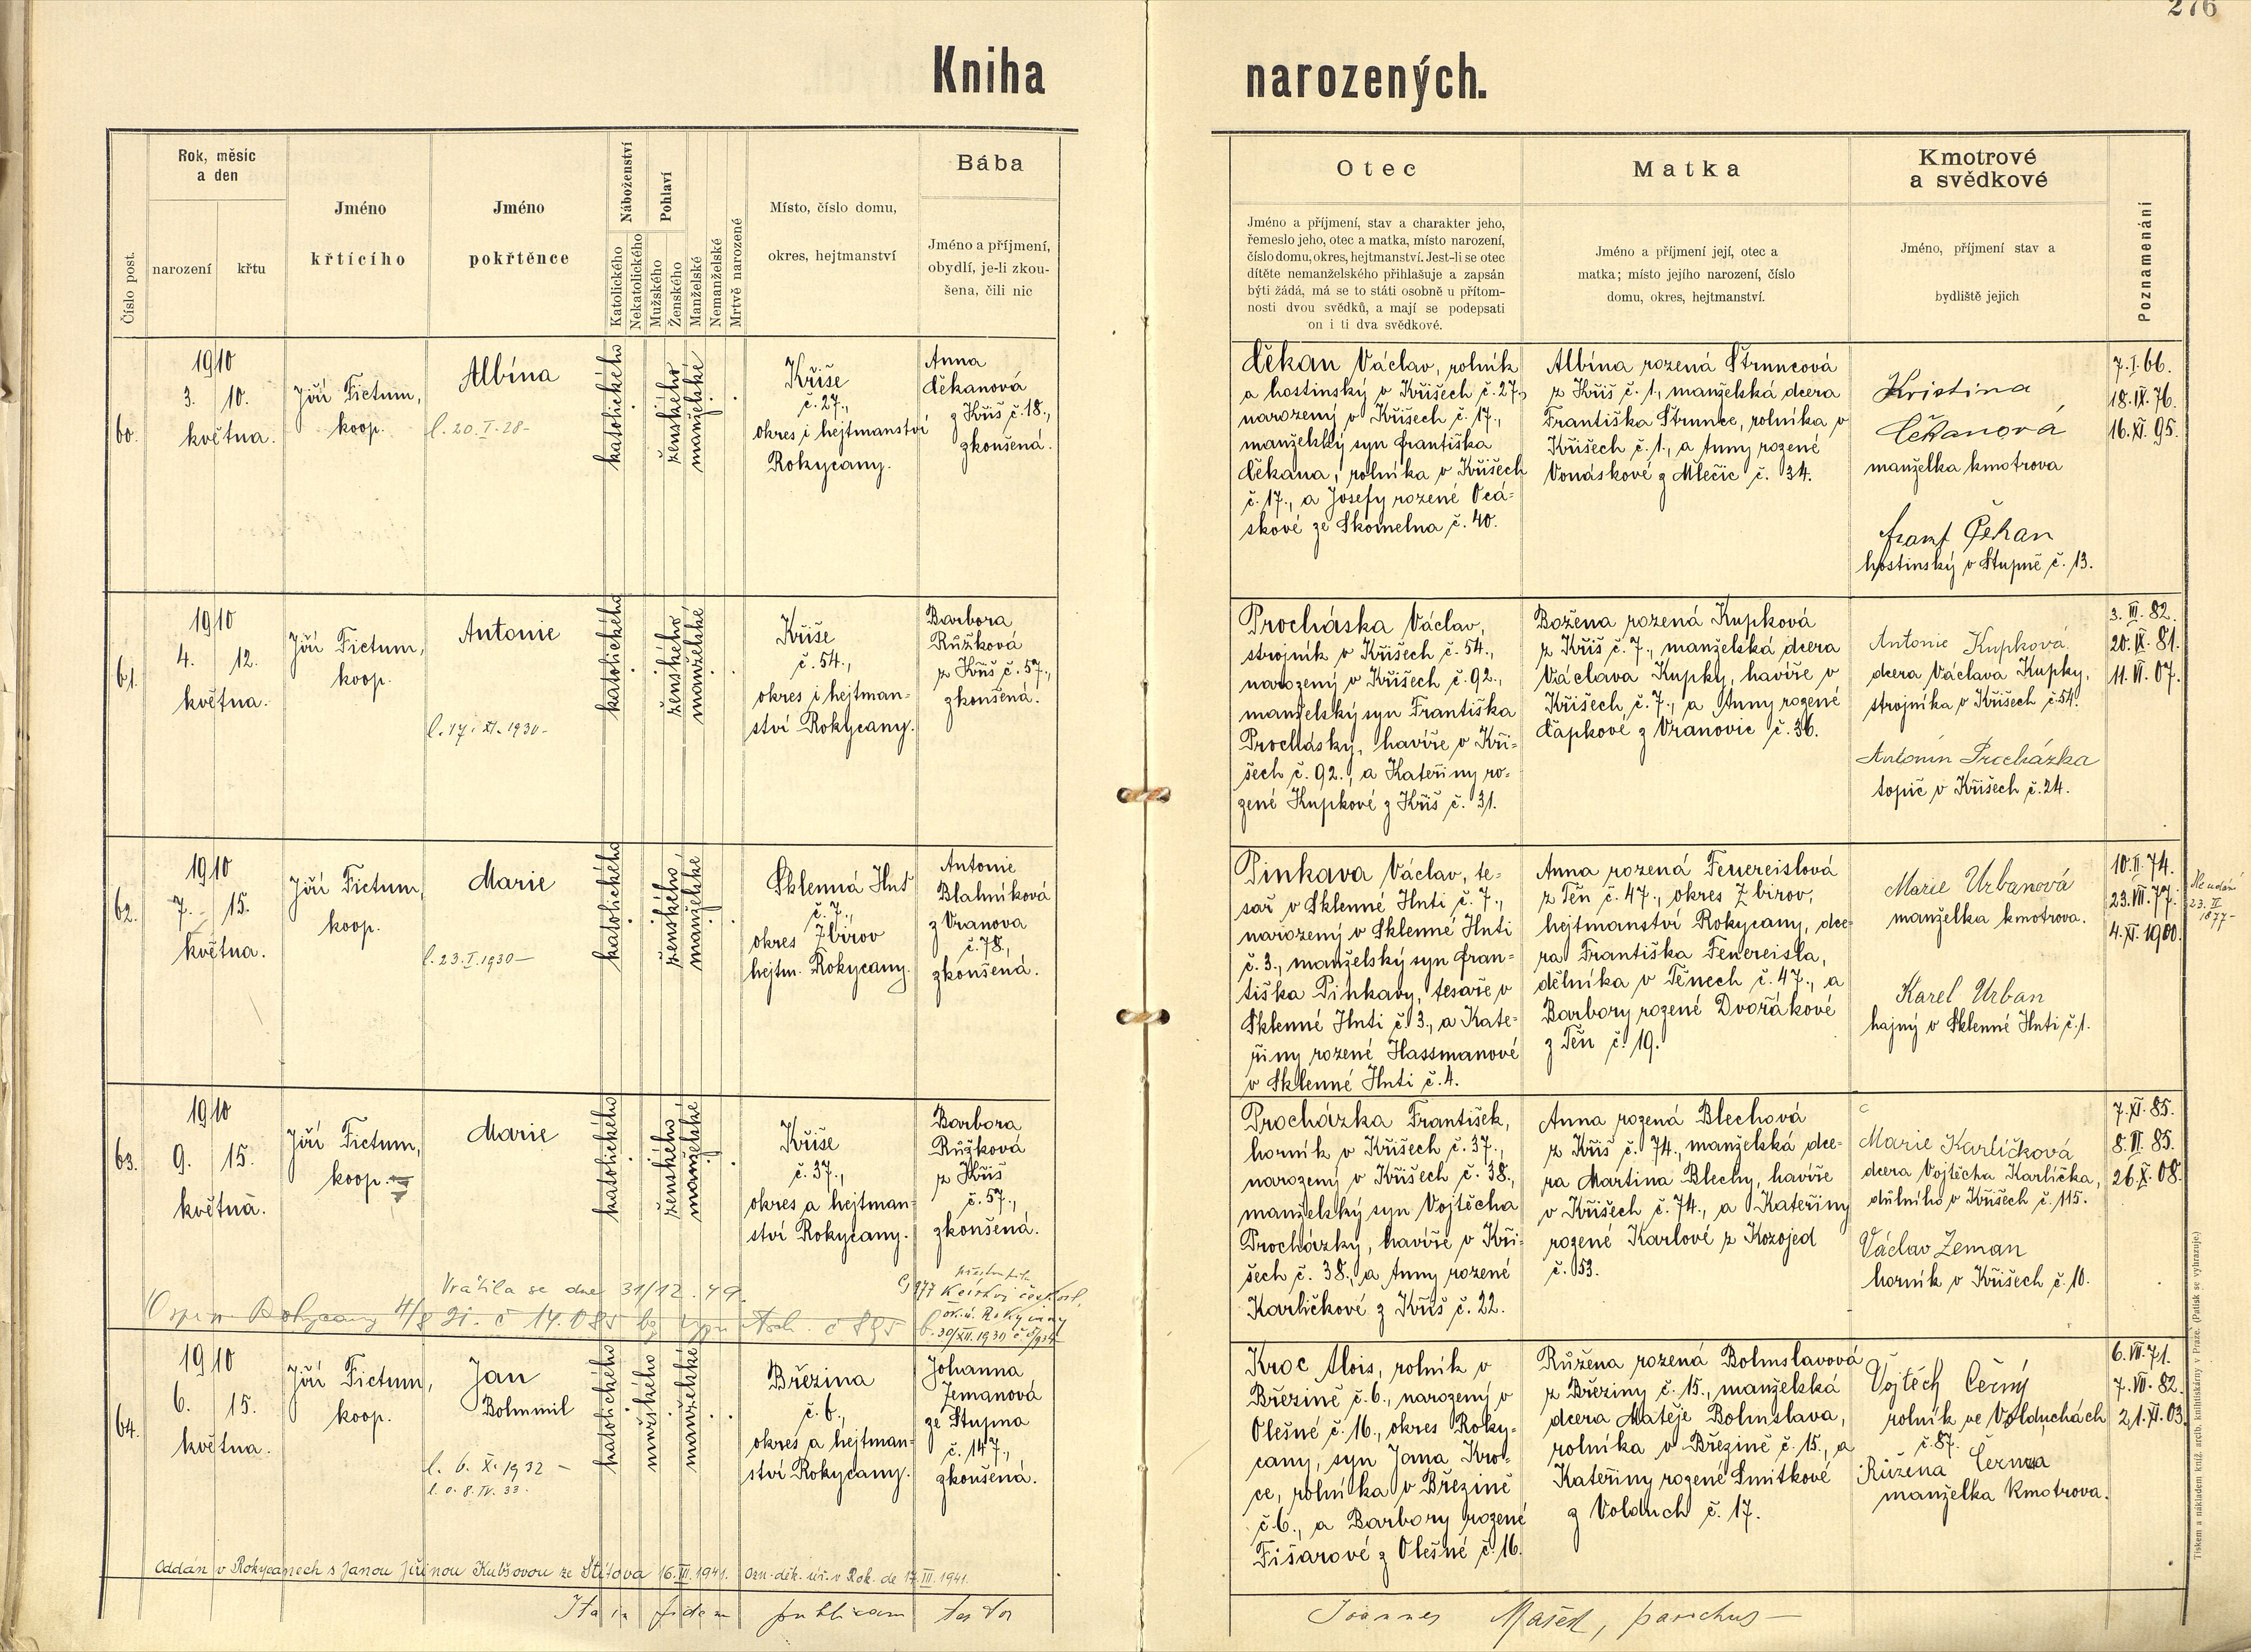 276
Kniha narozených.
Číslo post.
Rok, měsíc
a den
narození
křtu
Jméno
křtícího
Jméno
pokřtěnce
Náboženství
Katolického
Nekatolického
Pohlaví
Mužského
Ženského
Manželské
Nemanželské
Mrtvě narozené
Místo, číslo domu,
okres, hejtmanství
Bába
Jméno a příjmení,
obydlí, je-li zkou-
šena, čili nic
Otec
Jméno a příjmení, stav a charakter jeho,
řemeslo jeho, otec a matka, místo narození,
číslo domu, okres, hejtmanství. Jest-li se otec
dítěte nemanželského přihlašuje a zapsán
býti žádá, má se to státi osobně u přítom-
nosti dvou svědků, a mají se podepsati
on i ti dva svědkové.
Matka
Jméno a příjmení její, otec a
matka; místo jejího narození, číslo
domu, okres, hejtmanství.
Kmotrové
a svědkové
Jméno, příjmení stav a
bydliště jejich
Poznamenání
60.
1910
3. 10.
května.
Jiří Fictum,
koop.
Albína
l. 20. I. 28-
katolického
ženského
manželské
Kříše
č. 27.,
okres i hejtmanství
Rokycany.
Anna
Čekanová
z Kříš č. 18.,
zkoušená.
Čekan Václav, rolník
a hostinský v Kříšech č. 27.,
narozený v Kříšech č. 17.,
manželský syn Františka
Čekana, rolníka v Kříšech
č. 17., a Josefy rozené Ocá-
skové ze Skomelna č. 40.
Albína rozená Štruncová
z Kříš č. 1., manželská dcera
Františka Štrunce, rolníka v
Kříšech č. 1., a Anny rozené
Vonáskové z Mlečic č. 34.
Kristina
Čekanová
manželka kmotrova
Čekan
hostinský v Stupně č. 13.
7. I. 66.
18. IX. 76.
16. XI. 95.
61.
1910
4. 12.
května.
Jiří Fictum,
koop.
Antonie
l. 17. XI. 1930-
katolického
ženského
manželské
Kříše
č. 54.,
okres i hejtman-
ství Rokycany.
Barbora
Růžková
z Kříš č. 57.,
zkoušená.
Procháska Václav,
strojník v Kříšech č. 54.,
narozený v Kříšech č. 92.,
manželský syn Františka
Prochásky, havíře v Kří-
šech č. 92., a Kateřiny ro-
zené Kupkové z Kříš č. 31.
Božena rozená Kupková
z Kříš č. 7., manželská dcera
Václava Kupky, havíře v
Kříšech č. 7., a Anny rozené
Čapkové z Vranovic č. 36.
Antonie Kupková
dcera Václava Kupky,
strojníka v Kříšech č. 54.
Antonín Procházka
topič v Kříšech č. 24.
3. III. 82.
20. IX. 81.
11. VI. 07.
62.
1910
7. 15.
května.
Jiří Fictum,
koop.
Marie
l. 23. I. 1930-
katolického
ženského
manželské
Sklenná Huť
č. 7.,
okres Zbirov
hejtm. Rokycany.
Antonie
Blahníková
z Vranova
č. 78.,
zkoušená.
Pinkava Václav, te-
sař v Sklenné Huti č. 7.,
narozený v Sklenné Huti
č. 3., manželský syn Fran-
tiška Pinkavy, tesaře v
Sklenné Huti č. 3., a Kate-
řiny rozené Hassmanové
v Sklenné Huti č. 4.
Anna rozená Feuereislová
z Těň č. 47., okres Zbirov,
hejtmanství Rokycany, dce-
ra Františka Feuereisla,
dělníka v Těnech č. 47., a
Barbory rozené Dvořákové
z Těň č. 19.
Marie Urbanová
manželka kmotrova.
Karel Urban
hajný v Sklenné Huti č. 1.
10. II. 74.
23. VII. 77.
4. XI. 1900.
23. II
1877-
63.
1910
9. 15.
května.
Jiří Fictum,
koop.
Marie
katolického
ženského
manželské
Kříše
č. 37.,
okres a hejtman-
ství Rokycany.
Barbora
Růžková
z Kříš
č. 57.,
zkoušená.
Procházka František,
horník v Kříšech č. 37.,
narozený v Kříšech č. 38.,
manželský syn Vojtěcha
Procházky, havíře v Kří-
šech č. 38., a Anny rozené
Karlíčkové z Kříš č. 22.
Anna rozená Blechová
z Kříš č. 74., manželská dce-
ra Martina Blechy, havíře
v Kříšech č. 74., a Kateřiny
rozené Karlové z Kozojed
č. 53.
Marie Karlíčková
dcera Vojtěcha Karlíčka,
důlního v Kříšech č. 115.
Václav Zeman
horník v Kříšech č. 10.
7. XI. 85.
8. II. 85.
26. X. 08.
Vrátila se dne 31/12. 49.
Rokycany 4/8 21. č 14.085
30/XII. 1930
64.
1910
6. 15.
května.
Jiří Fictum,
koop.
Jan
Bohumil
l. 6. X. 1932 -
l. o. 8. IV. 33.
katolického
mužského
manželské
Březina
č. 6.,
okres a hejtman-
ství Rokycany.
Johanna
Zemanová
ze Stupna
č. 147.,
zkoušená.
Kroc Alois, rolník v
Březině č. 6., narozený v
Olešné č. 16., okres Roky-
cany, syn Jana Kro-
ce, rolníka v Březině
č. 6., a Barbory rozené
Fišarové z Olešné č. 16.
Růžena rozená Bohuslavová
z Březiny č. 15., manželská
dcera Matěje Bohuslava,
rolníka v Březině č. 15., a
Kateřiny rozené Smitkové
z Volduch č. 17.
Vojtěch Černý
rolník ve Volduchách
č. 87.
Růžena Černá
manželka kmotrova.
6. VII. 71.
7. VII. 82.
21. XI. 03.
Oddán v Rokycanech s Janou Jiřinou Kubšovou ze Štítova 16. III. 1941. Ozn. děk. úř. v Rok. de 17. III. 1941.
Ita in fidem publicam testor
Joannes Mašek, parochus-
Tiskem a nákladem kníž. arcib. knihtiskárny v Praze. (Patisk se vyhrazuje.)